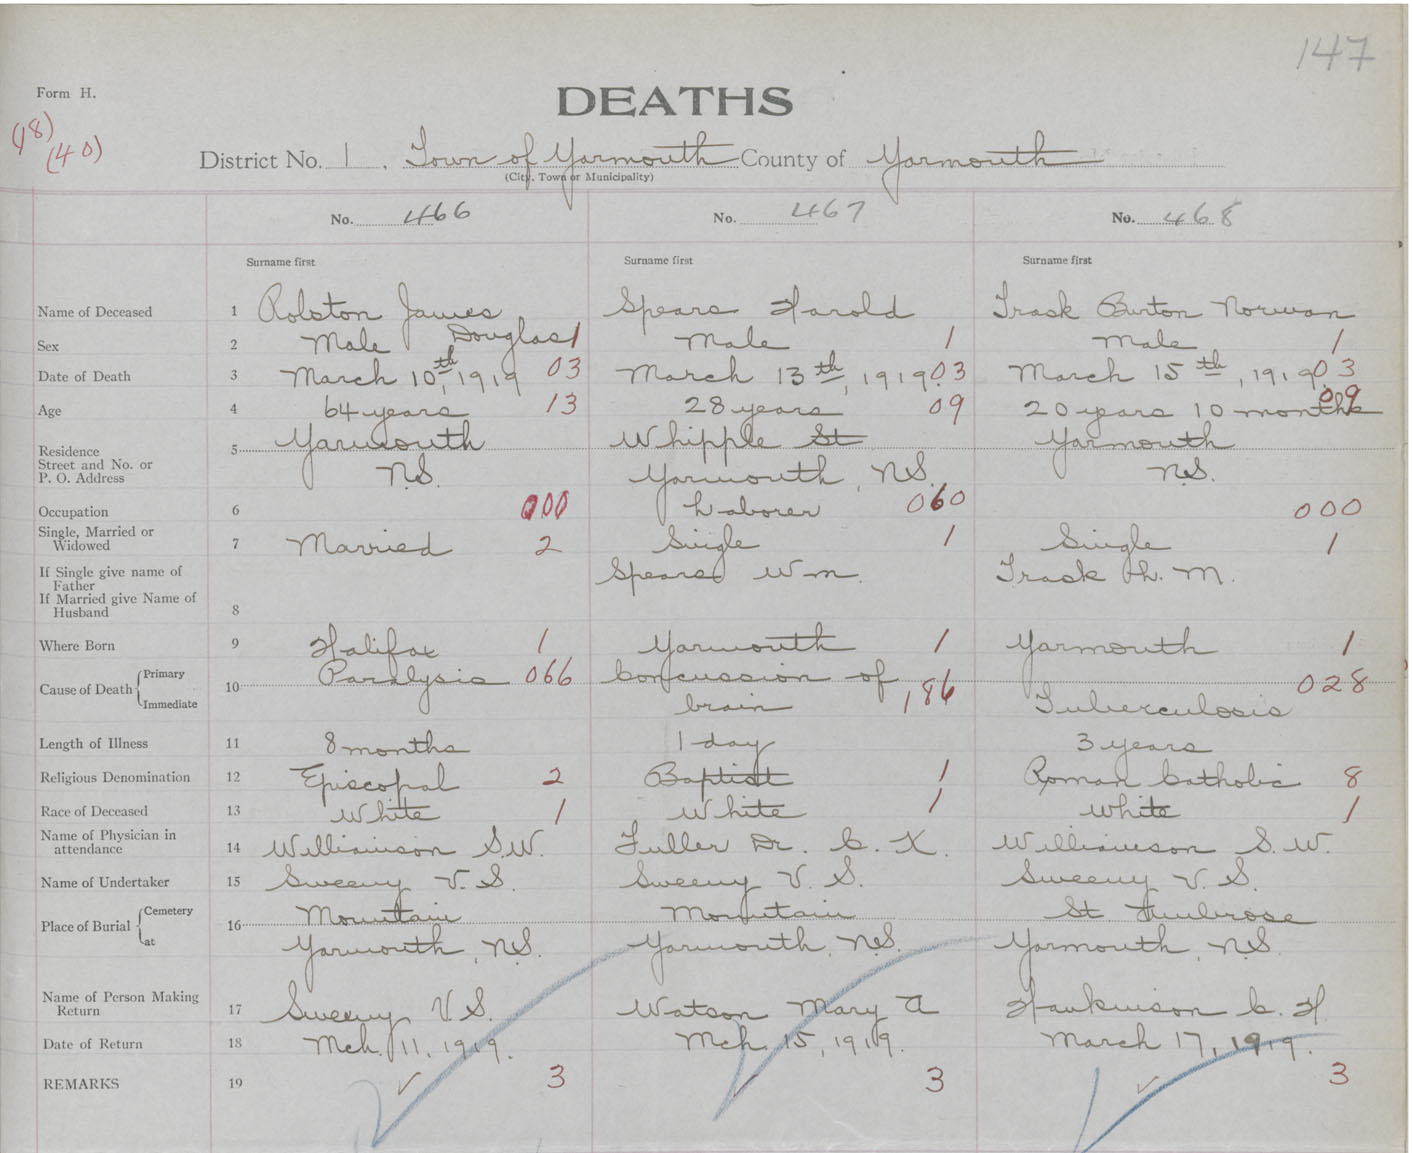 147
Form H.
DEATHS
(18)
(40)
District No. 1. Town of Yarmouth County of Yarmouth
(City, Town or Municipality)
No. 466 No. 467 No. 468
Surname first Surname first Surname first
Name of Deceased 1 Rolston James Spears Harold Trask Burton Norman
Douglas
Sex 2 Male 1 Male 1 Male 1
Date of Death 3 March 10th, 1919 03 March 13th, 1919. 03 March 15th, 1919. 03
Age 4 64 years 13 28 years 09 20 years 10 months 09
Residence 5 Yarmouth Whipple St Yarmouth
Street and No. or
P. O. Address N.S. Yarmouth, N.S. N.S.
Occupation 6 000 Laborer 060 000
Single, Married or
Widowed 7 Married 2 Single 1 Single 1
If Single give name of
Father Spears Wm. Trask L. M.
If Married give Name of
Husband 8
Where Born 9 Halifax 1 Yarmouth 1 Yarmouth 1
Cause of Death { Primary 10 Paralysis 066 Concussion of 186 028
Immediate brain Tuberculosis
Length of Illness 11 8 months 1 day 3 years
Religious Denomination 12 Episcopal 2 Baptist 1 Roman Catholic 8
Race of Deceased 13 White 1 White 1 White 1
Name of Physician in
attendance 14 Williamson S.W. Fuller Dr. C. K. Williamson S. W.
Name of Undertaker 15 Sweeny V. S. Sweeny V. S. Sweeny V. S.
Place of Burial { Cemetery 16 Mountain Mountain St Ambrose
at Yarmouth, N.S. Yarmouth, N.S. Yarmouth, N.S.
Name of Person Making
Return 17 Sweeny V. S. Watson Mary A Hawkinson C. H.
Date of Return 18 Mch. 11, 1919. Mch. 15, 1919. March 17, 1919.
REMARKS 19 3 3 3